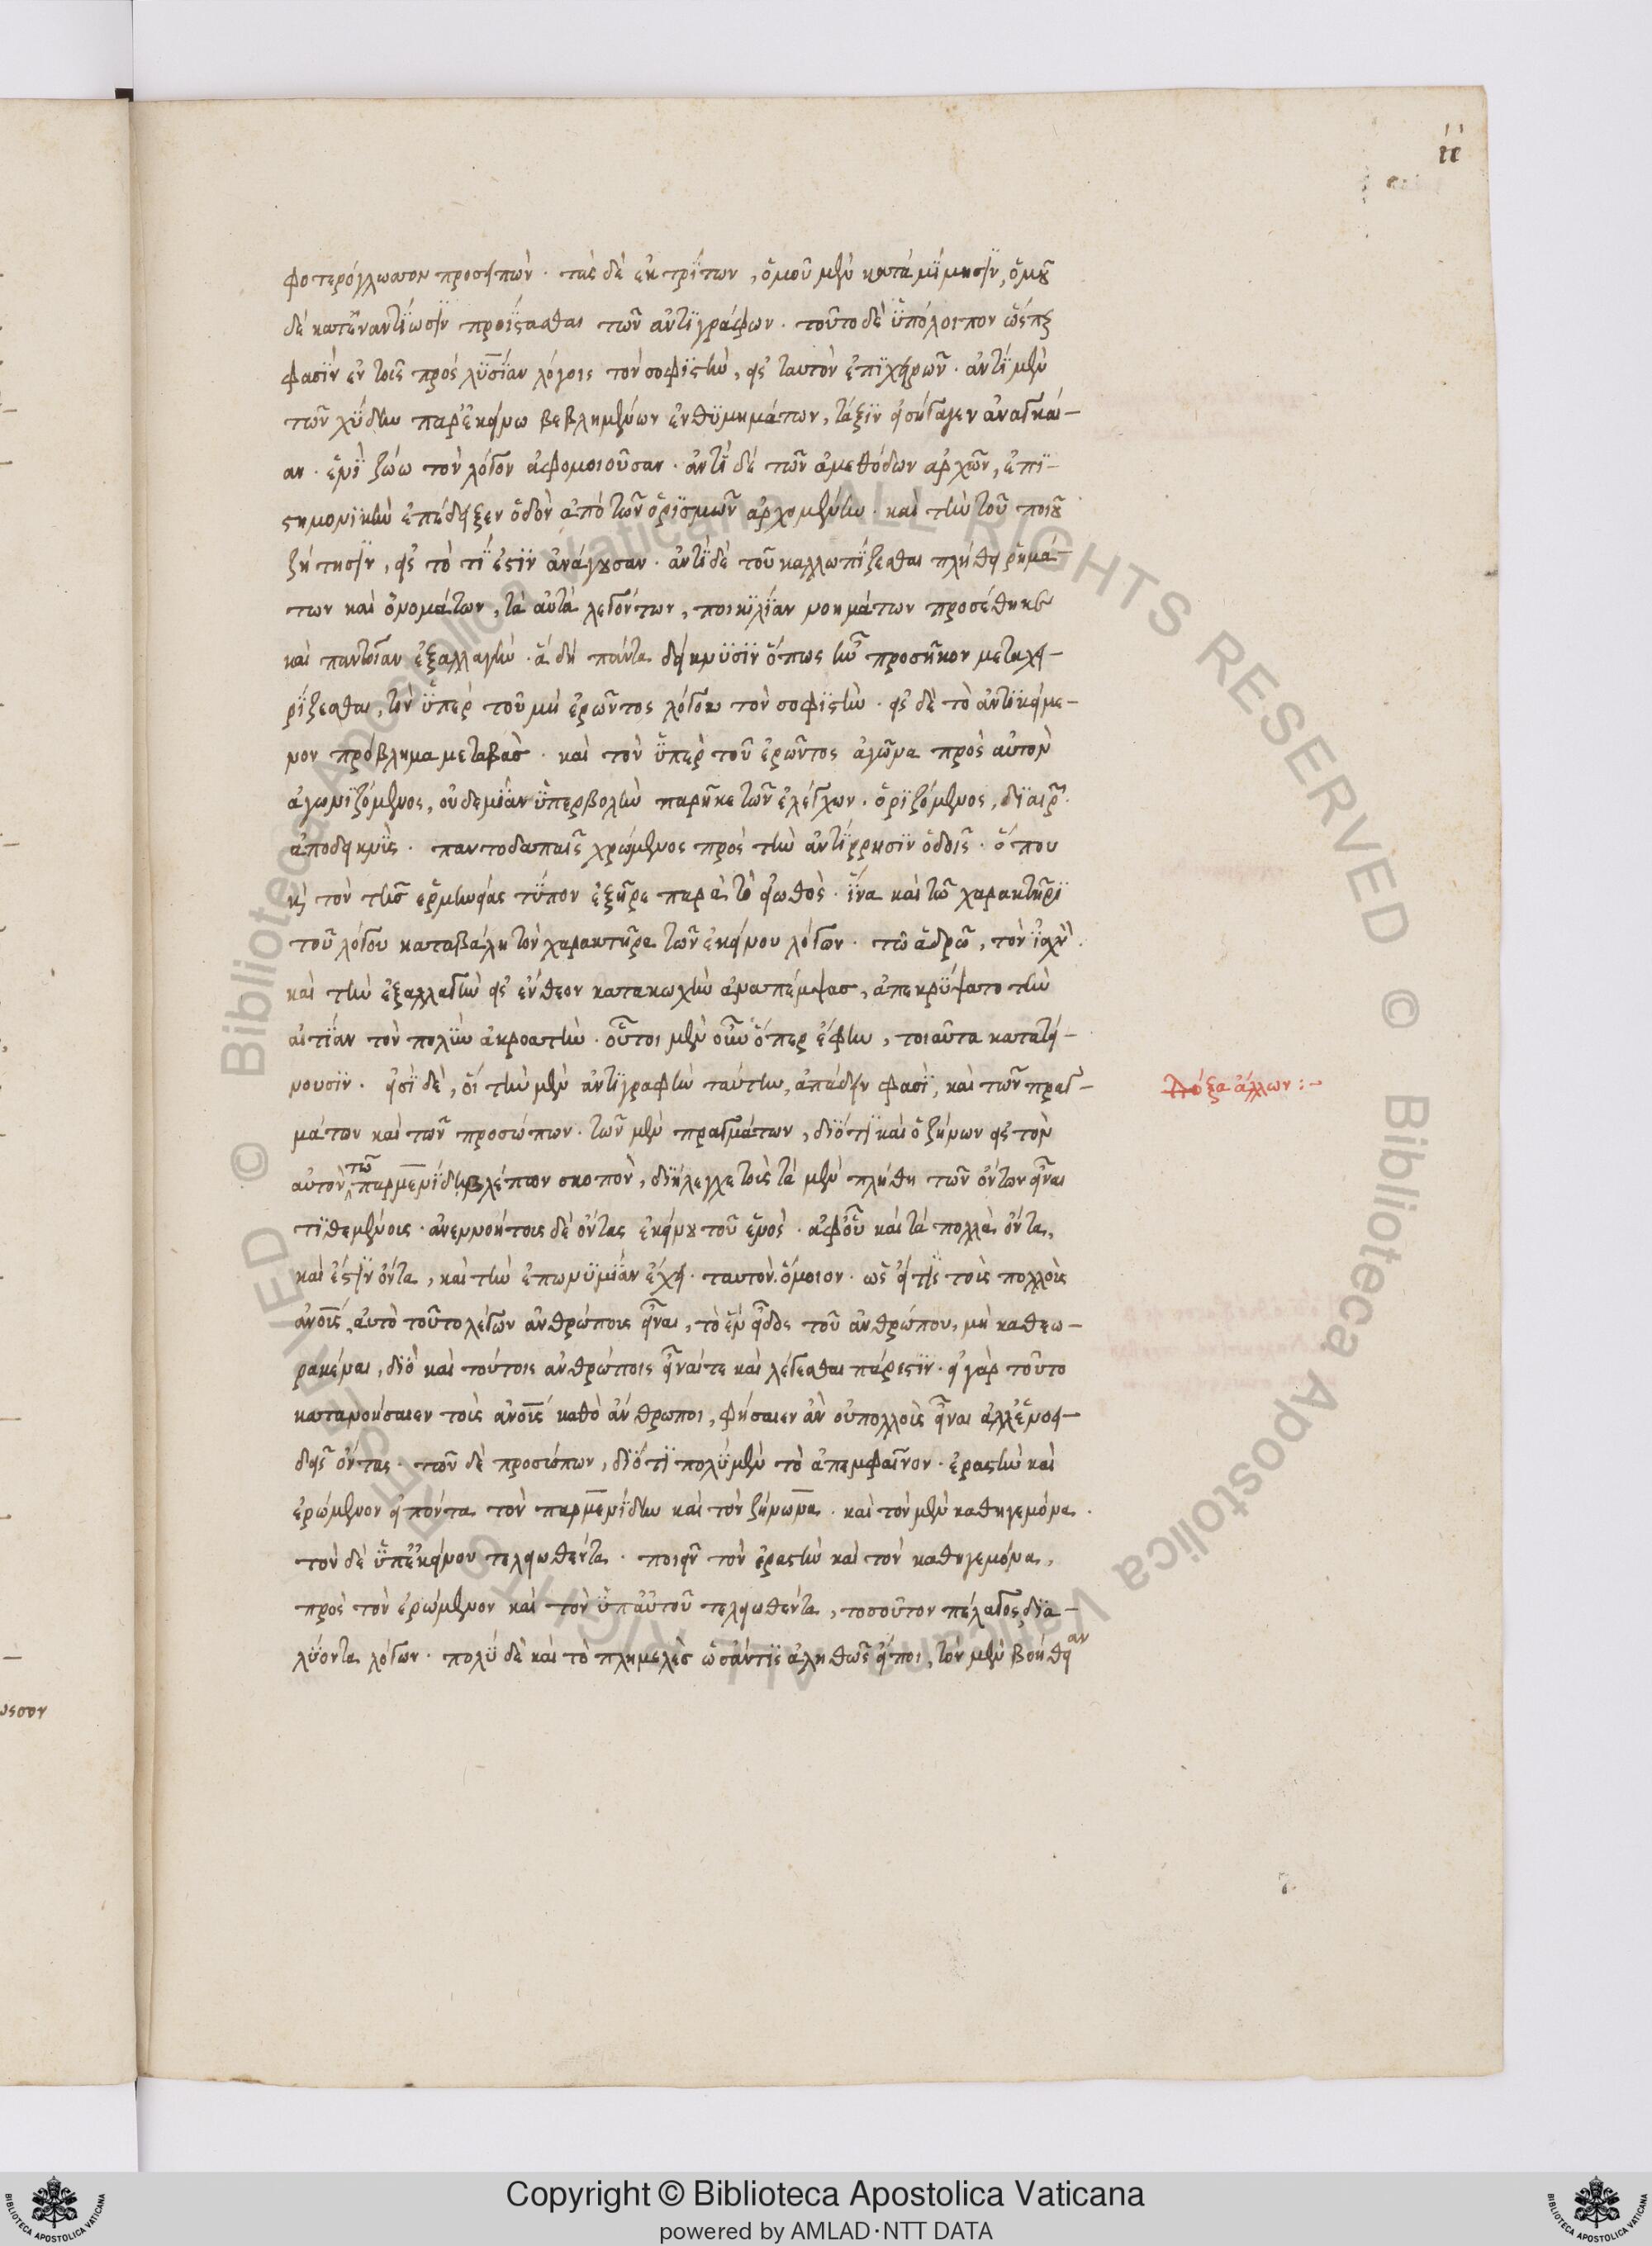 ιε
φοτερόγλωσσον προσειπών. τὰς δὲ ἐκ τρίτων, ὁμοῦ μὲν κατὰ μίμησιν, ὁμοῦ
δὲ κατ' ἐναντίωσιν προΐστασθαι τῶν ἀντιγράφων. τοῦτο δὲ ὑπόλοιπον ὥσπερ
φασὶν ἐν τοῖς πρὸς λυσίαν λόγοις τὸν σοφιστὴν, εἰς ταυτὸν ἐπιχειρῶν. ἀντὶ μὲν
τῶν χύδην παρ' ἐκείνω βεβλημένων ἐνθυμημάτων, τάξιν εἰσήγαγεν ἀναγκαί-
αν. ἑνὶ ζώω τὸν λόγον ἀφομοιοῦσαν. ἀντὶ δὲ τῶν ἀμεθόδων ἀρχῶν, ἐπι-
στημονικὴν ἐπέδειξεν ὁδὸν ἀπὸ τῶν ὁρισμῶν ἀρχομένην. καὶ τὴν τοῦ ποιοῦ
ζήτησιν, εἰς τὸ τί ἐστιν ἀνάγουσαν. ἀντὶ δὲ τοῦ καλλωπίζεσθαι πλήθει ῥημά-
των καὶ ὀνομάτων, τὰ αὐτὰ λεγόντων, ποικιλίαν νοημάτων προσέθηκε
καὶ παντοίαν ἐξαλλαγήν. ἃ δὴ πάντα δείκνυσιν ὅπως ἦν προσῆκον μεταχει-
ρίζεσθαι, τὸν ὑπὲρ τοῦ μὴ ἐρῶντος λόγον τὸν σοφιστήν. εἰς δὲ τὸ ἀντικείμε-
νον πρόβλημα μεταβάς. καὶ τὸν ὑπὲρ τοῦ ἐρῶντος ἀγῶνα πρὸς αὐτὸν
ἀγωνιζόμενος, οὐδεμίαν ὑπερβολὴν παρῆκε τῶν ἐλέγχων. ὁριζόμενος, διαιρῶν.
ἀποδεικνὺς. παντοδαπαῖς χρώμενος πρὸς τὴν ἀντίρρησιν ὁδοῖς. ὅπου
καὶ τὸν τῆς ἑρμηνείας τύπον ἐξῆρε παρὰ τὸ εἰωθὸς. ἵνα καὶ τῶ χαρακτῆρι
τοῦ λόγου καταβάλη τὸν χαρακτῆρα τῶν ἐκείνου λόγων. τῶ ἁδρῶ, τὸν ἰσχνὸν.
καὶ τὴν ἐξαλλαγὴν εἰς ἔνθεον κατακωχὴν ἀναπέμψας, ἀπεκρύψατο τὴν
αἰτίαν τὸν πολὺν ἀκροατὴν. οὗτοι μὲν οὖν ὅπερ ἔφην, τοιαῦτα κατατεί-
νουσιν. εἰσὶ δὲ, οἳ τὴν μὲν ἀντιγραφὴν ταύτην, ἀπάδειν φασὶ, καὶ τῶν πραγ-
μάτων καὶ τῶν προσώπων. τῶν μὲν πραγμάτων, διότι καὶ ὁ ζήνων εἰς τὸν
αὐτὸν τῶ παρμενίδη βλέπων σκοπὸν, διήλεγχε τοῖς τὰ μὲν πλήθη τῶν ὄντων εἶναι
τιθεμένοις. ἀνεννοήτοις δὲ ὄντας ἐκείνου τοῦ ἑνὸς. ἀφ' οὗ καὶ τὰ πολλὰ ὄντα,
καὶ ἔστιν ὄντα, καὶ τὴν ἐπωνυμίαν ἔχει. ταυτὸν ὅμοιον. ὡς εἴ τις τοῖς πολλοῖς
ἀνοις, αὐτὸ τοῦτο λέγων ἀνθρώποις εἶναι, τὸ ἓν εἶδος τοῦ ἀνθρώπου, μὴ καθεω-
ρακέναι, διὸ καὶ τούτοις ἀνθρώποις εἶναί τε καὶ λέγεσθαι πάρεστιν. εἰ γὰρ τοῦτο
κατανοήσαιεν τοῖς ἀνοις καθὸ ἄνθρωποι, φήσαιεν ἂν οὐ πολλοὺς εἶναι ἀλλ' ἑνοει-
δεῖς ὄντας. τῶν δὲ προσώπων, διότι πολὺ μὲν τὸ ἀπεμφαῖνον. ἐραστὴν καὶ
ἐρώμενον εἰπόντα τὸν παρμενίδην καὶ τὸν ζήνωνα. καὶ τὸν μὲν καθηγεμόνα.
τὸν δὲ ὑπ' ἐκείνου τελειωθέντα. ποιεῖν τὸν ἐραστὴν καὶ τὸν καθηγεμόνα,
πρὸς τὸν ἐρώμενον καὶ τὸν ὑπ' αὐτοῦ τελειωθέντα, τοσοῦτον πέλαγος δια-
λύοντα λόγων. πολὺ δὲ καὶ τὸ πλημελὲς ὡς ἄν τις ἀληθῶς εἴποι, τὸν μὲν βοήθειαν
Δόξα ἄλλων:-
Copyright © Biblioteca Apostolica Vaticana
powered by AMLAD·NTT DATA